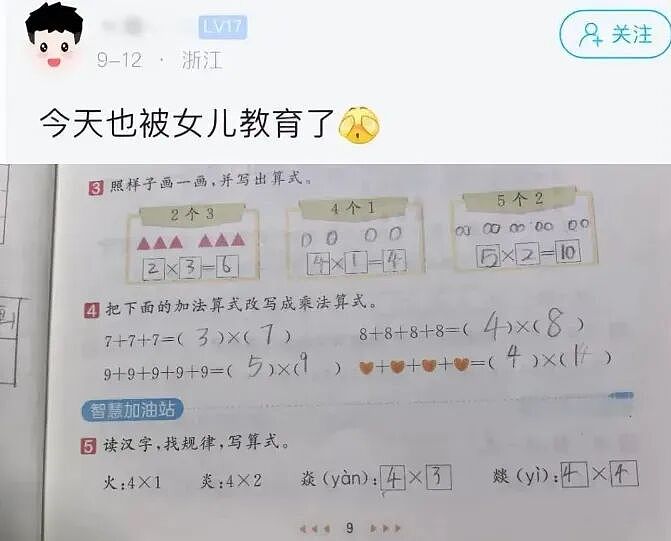 LV17
9-12 · 浙江
关注
今天也被女儿教育了
3 照样子画一画,并写出算式。
2个3 4个1 5个2
2×3=6 4×1=4 5×2=10
4 把下面的加法算式改写成乘法算式。
7+7+7=( 3 )×( 7 ) 8+8+8+8=( 4 )×( 8 )
9+9+9+9+9=( 5 )×( 9 ) ❤+❤+❤+❤=( 4 )×( )
智慧加油站
5 读汉字,找规律,写算式。
火:4×1 炎:4×2 焱(yàn):4×3 燚(yì):4×4
9